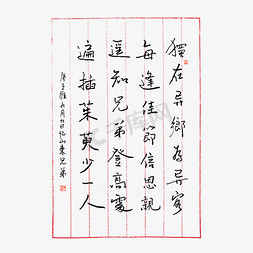 獨在异鄉為异客
每逢佳節倍思親
遥知兄弟登高處
遍插茱萸少一人
唐王維九月九日忆山東兄弟